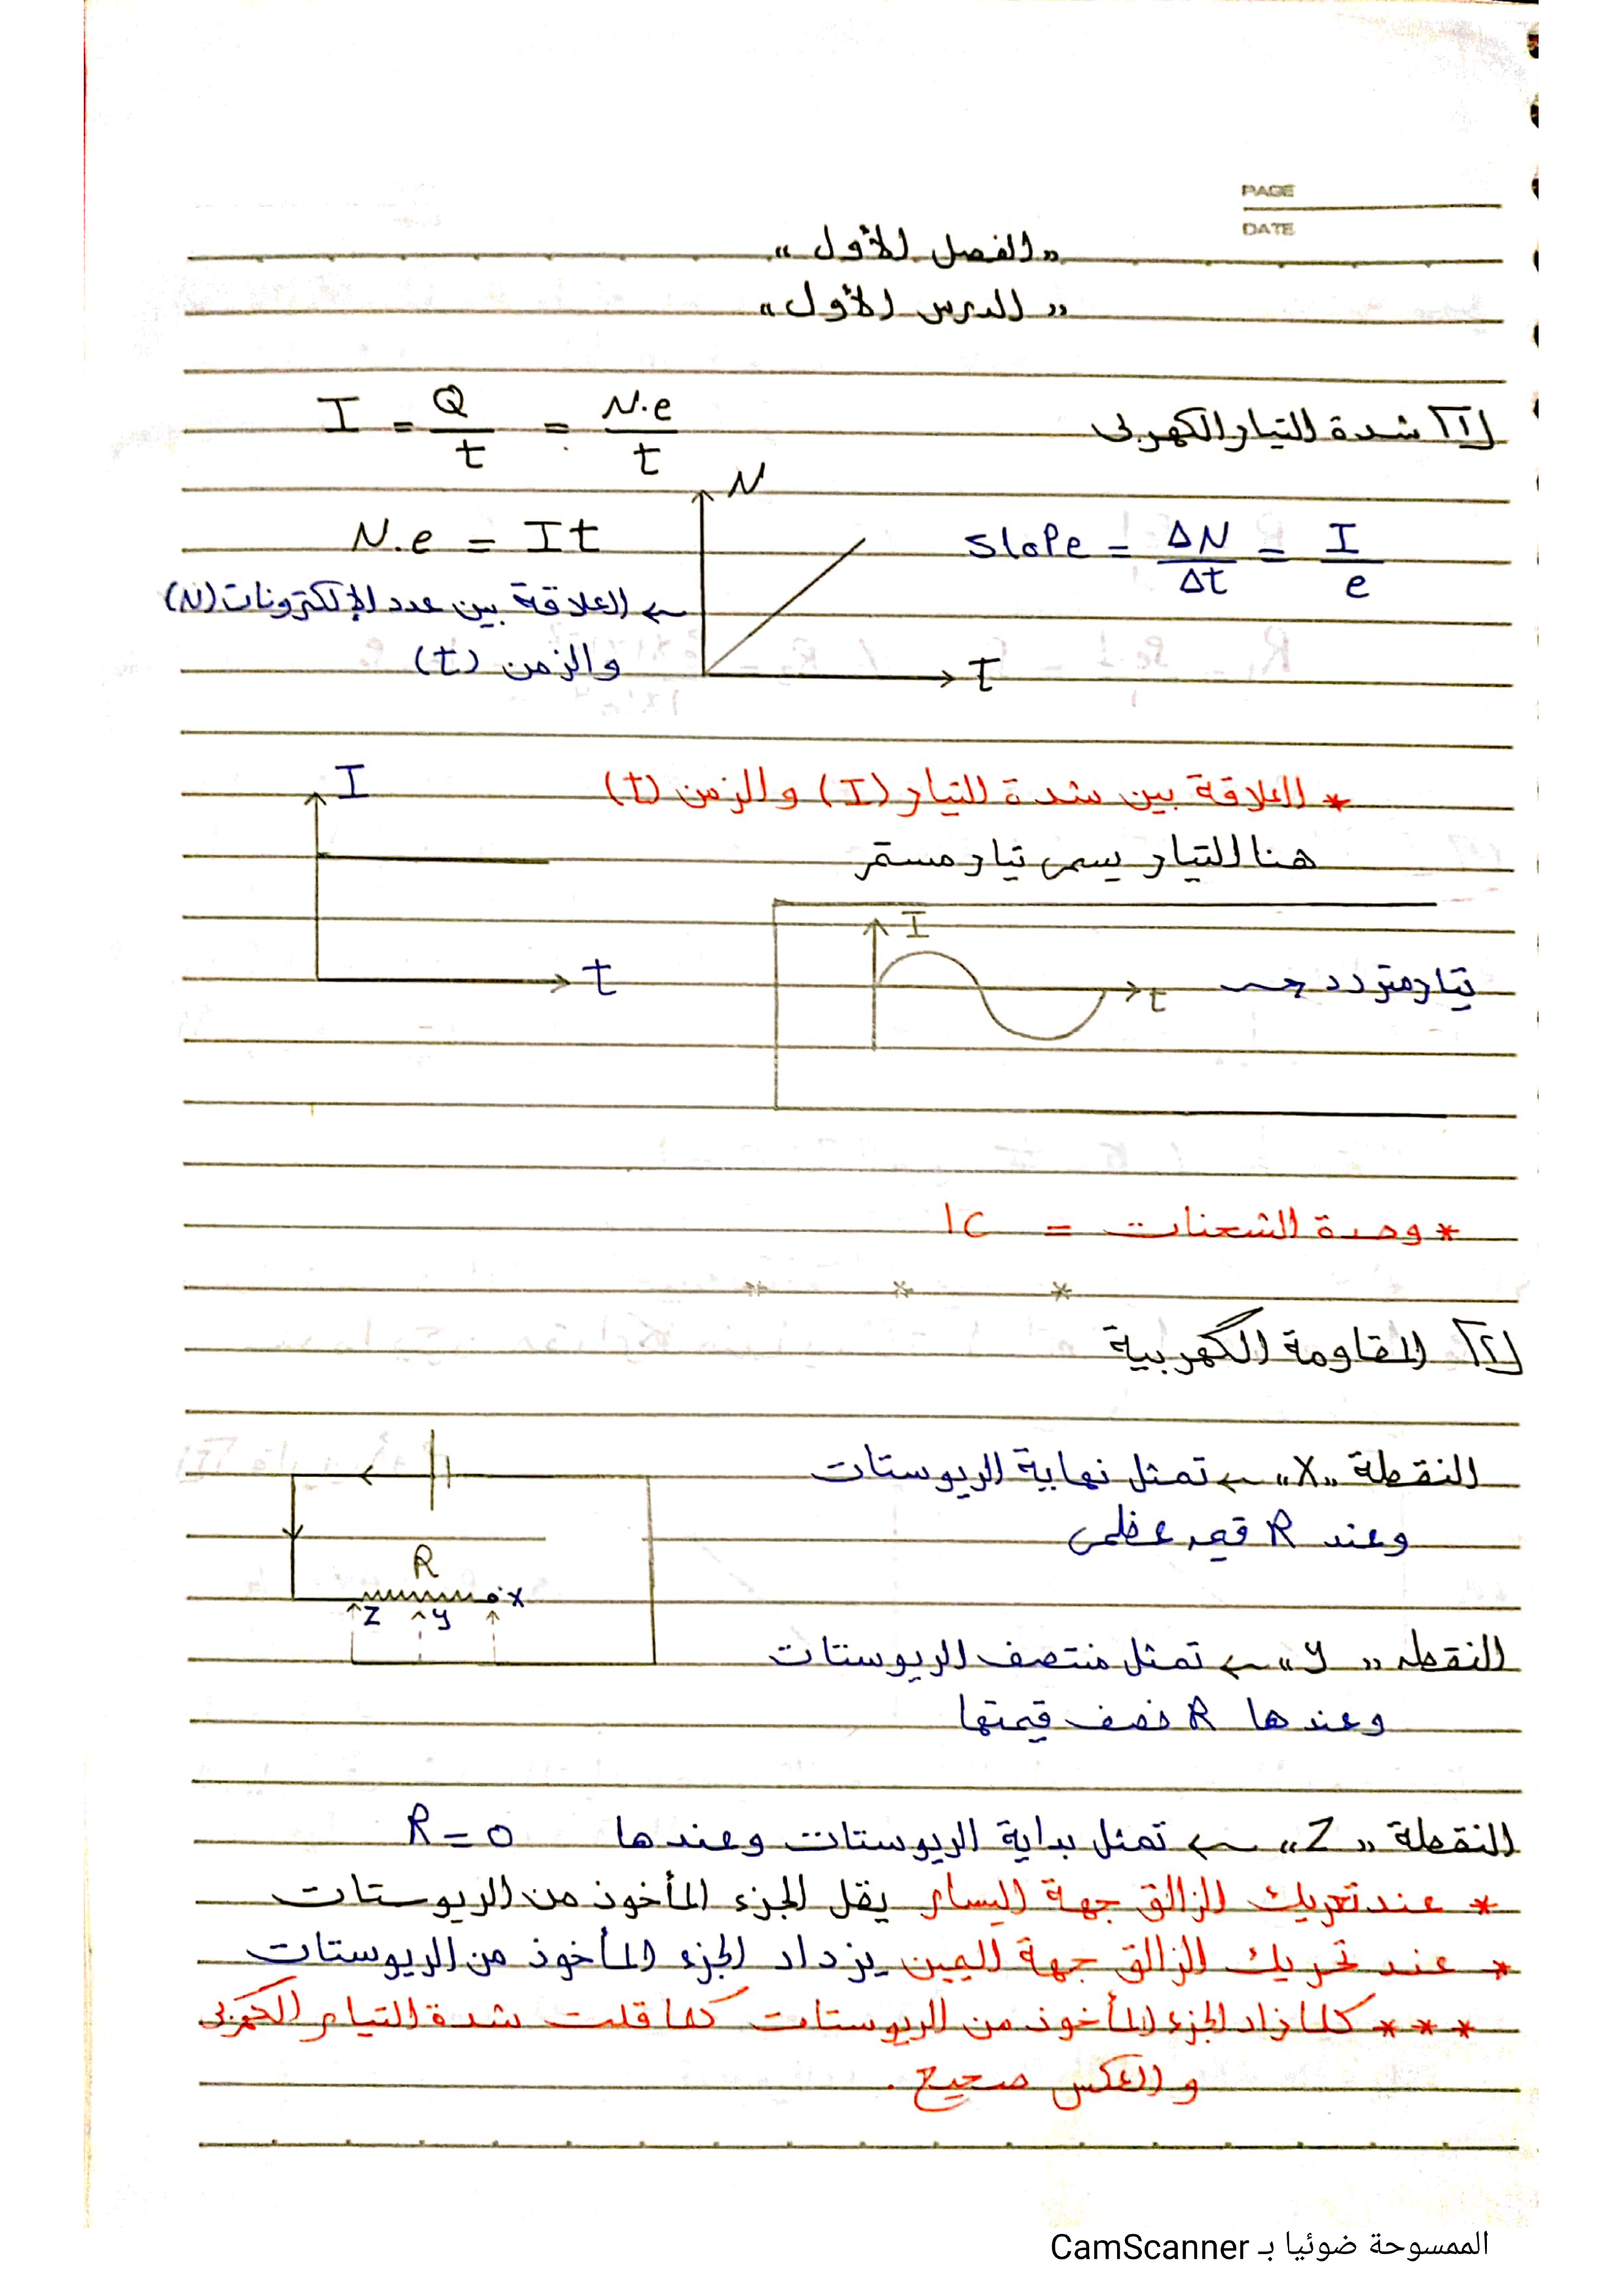 PAGE
DATE
"الفصل الأول"
"الدرس الأول"
[1] شدة التيار الكهربى I = Q/t = N.e/t
N
N.e = It
slope = ΔN/Δt = I/e
← العلاقة بين عدد الإلكترونات (N)
والزمن (t)
t
* العلاقة بين شدة التيار (I) والزمن (t)
I
هنا التيار يسمى تيار مستمر
I
t
تيار متردد جـ
t
* وحدة الشحنات = 1C
* * *
[2] المقاومة الكهربية
النقطة "X" ← تمثل نهاية الريوستات
وعند R قيمه عظمى
R
X
Z y
النقطه "y" ← تمثل منتصف الريوستات
وعندها R نصف قيمتها
النقطة "Z" ← تمثل بداية الريوستات وعندها R = 0
* عند تحريك الزالق جهة اليسار يقل الجزء المأخوذ من الريوستات
* عند تحريك الزالق جهة اليمين يزداد الجزء المأخوذ من الريوستات
* * * كلما زاد الجزء المأخوذ من الريوستات كلما قلت شدة التيار الكهربى
والعكس صحيح .
الممسوحة ضوئيا بـ CamScanner